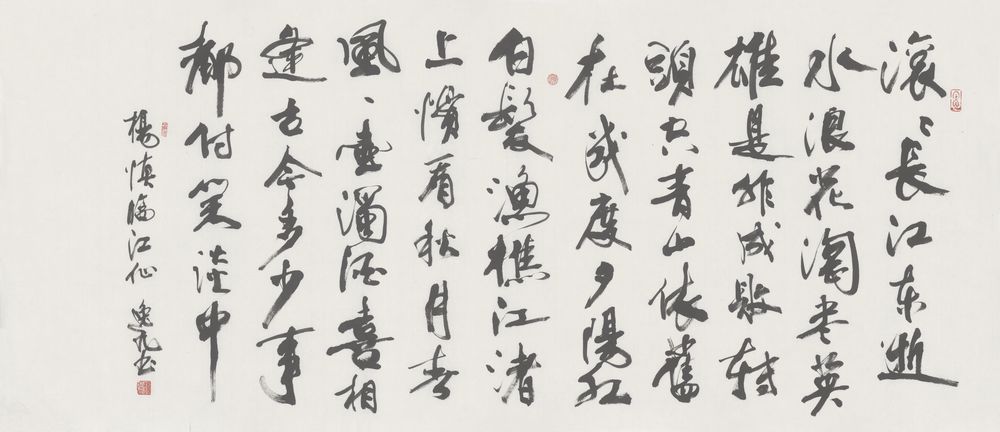 滚〻長江東逝
水浪花淘尽英
雄是非成敗轉
頭空青山依舊
在幾度夕陽紅
白髮漁樵江渚
上慣看秋月春
風一壺濁酒喜相
逢古今多少事
都付笑談中
楊慎臨江仙 書